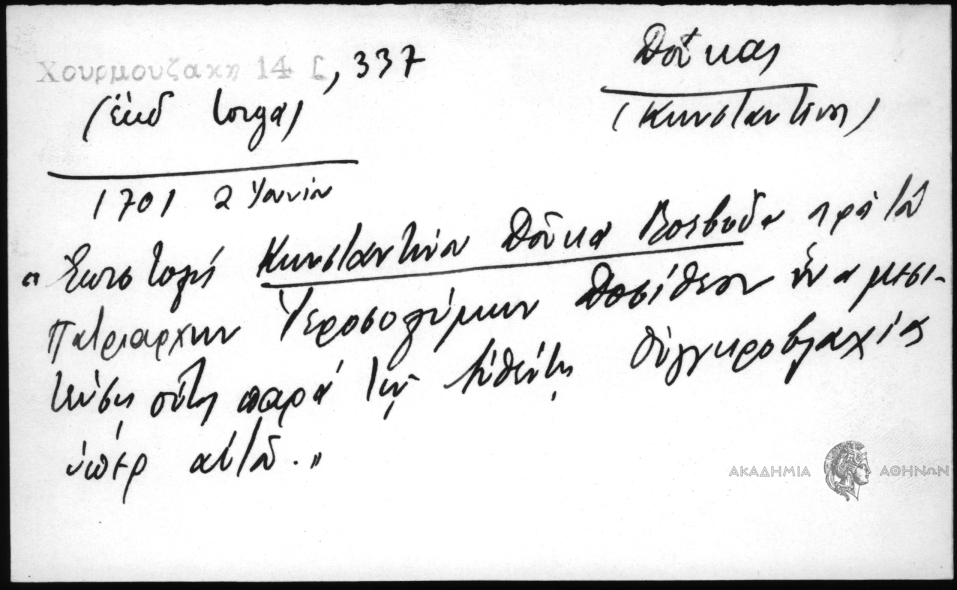 Χουρμουζακη 14 Γ, 337
(ἐκδ Iorga)
Δούκας
(Κωνσταντῖνος)
1701 2 Ἰουνίου
"Ἐπιστολὴ Κωνσταντίνου Δούκα Βοεβόδα πρὸς τὸν
πατριάρχην Ἱεροσολύμων Δοσίθεον ἵνα μεσι-
τεύσῃ οὗτος παρὰ τῷ αὐθέντῃ Οὐγγροβλαχίας
ὑπὲρ αὐτοῦ."
ΑΚΑΔΗΜΙΑ ΑΘΗΝΩΝ